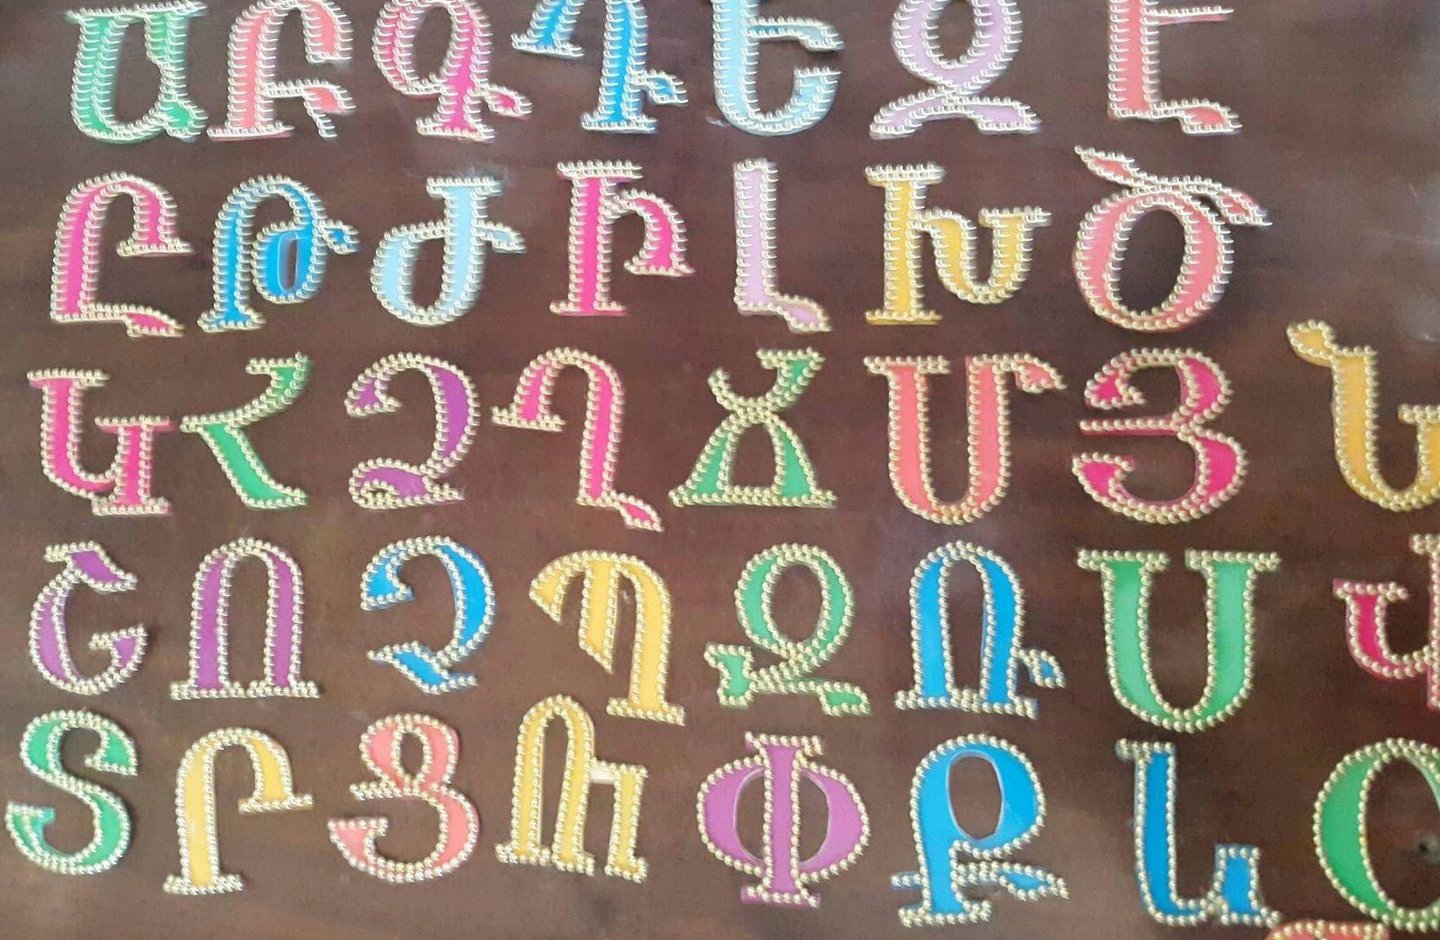 Ա Բ Գ Դ Ե Զ Է
Ը Թ Ժ Ի Լ Խ Ծ
Կ Հ Ձ Ղ Ճ Մ Յ Ն
Շ Ո Չ Պ Ջ Ռ Ս Վ
Տ Ր Ց Ու Փ Ք և Օ